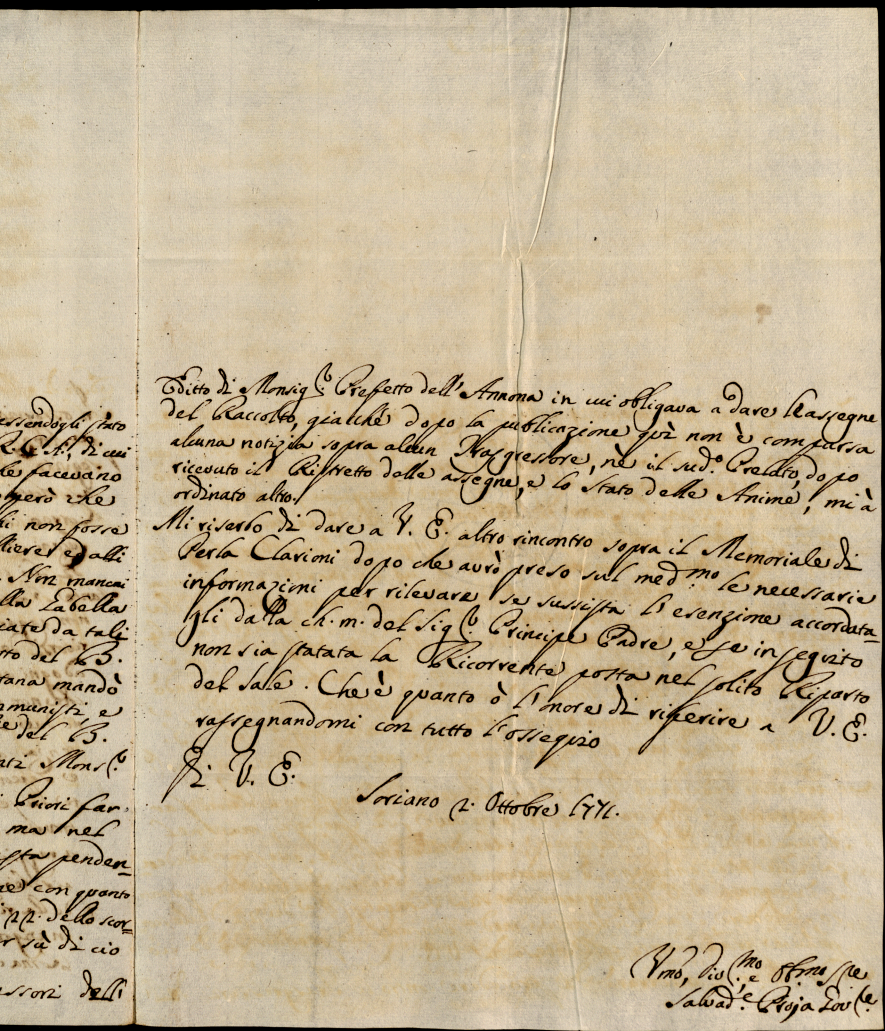 essendogli stato
R. C. A., di cui
le facevano
però che
non fosse
ed alli
Non mancai
lla Tabella
cate da tali
tto del B.
rana mandò
mmunisti, e
del B.
Mons.r
Priori far-
ma nel
sta penden=
ne con quanto
22. dello scor=
r sù di cio
ssori delli
Editto di Monsig.r Prefetto dell'Annona in cui obligava a dare l'assegne
del Raccolto, giacchè dopo la publicazione quì non è comparsa
alcuna notizia sopra alcun Trasgressore, nè il sud.o Prelato, dopo
ricevuto il Ristretto delle assegne, e lo Stato delle Anime, mi à
ordinato altro.
Mi riserbo di dare a V. E. altro rincontro sopra il Memoriale di
Perla Clarioni dopo che avrò preso sul med.mo le necessarie
informazioni per rilevare se sussista l'esenzione accordata=
gli dalla ch. m. del Sig.r Principe Padre, e se in seguito
non sia statata la Ricorrente posta nel solito Riparto
del Sale. Che è quanto ò l'onore di riferire a V. E.
rassegnandomi con tutto l'ossequio
Di V. E.
Soriano 2. Ottobre 1771.
Vmo, Div.mo, e Obmo Sre
Salvad.e Proja Gov.re